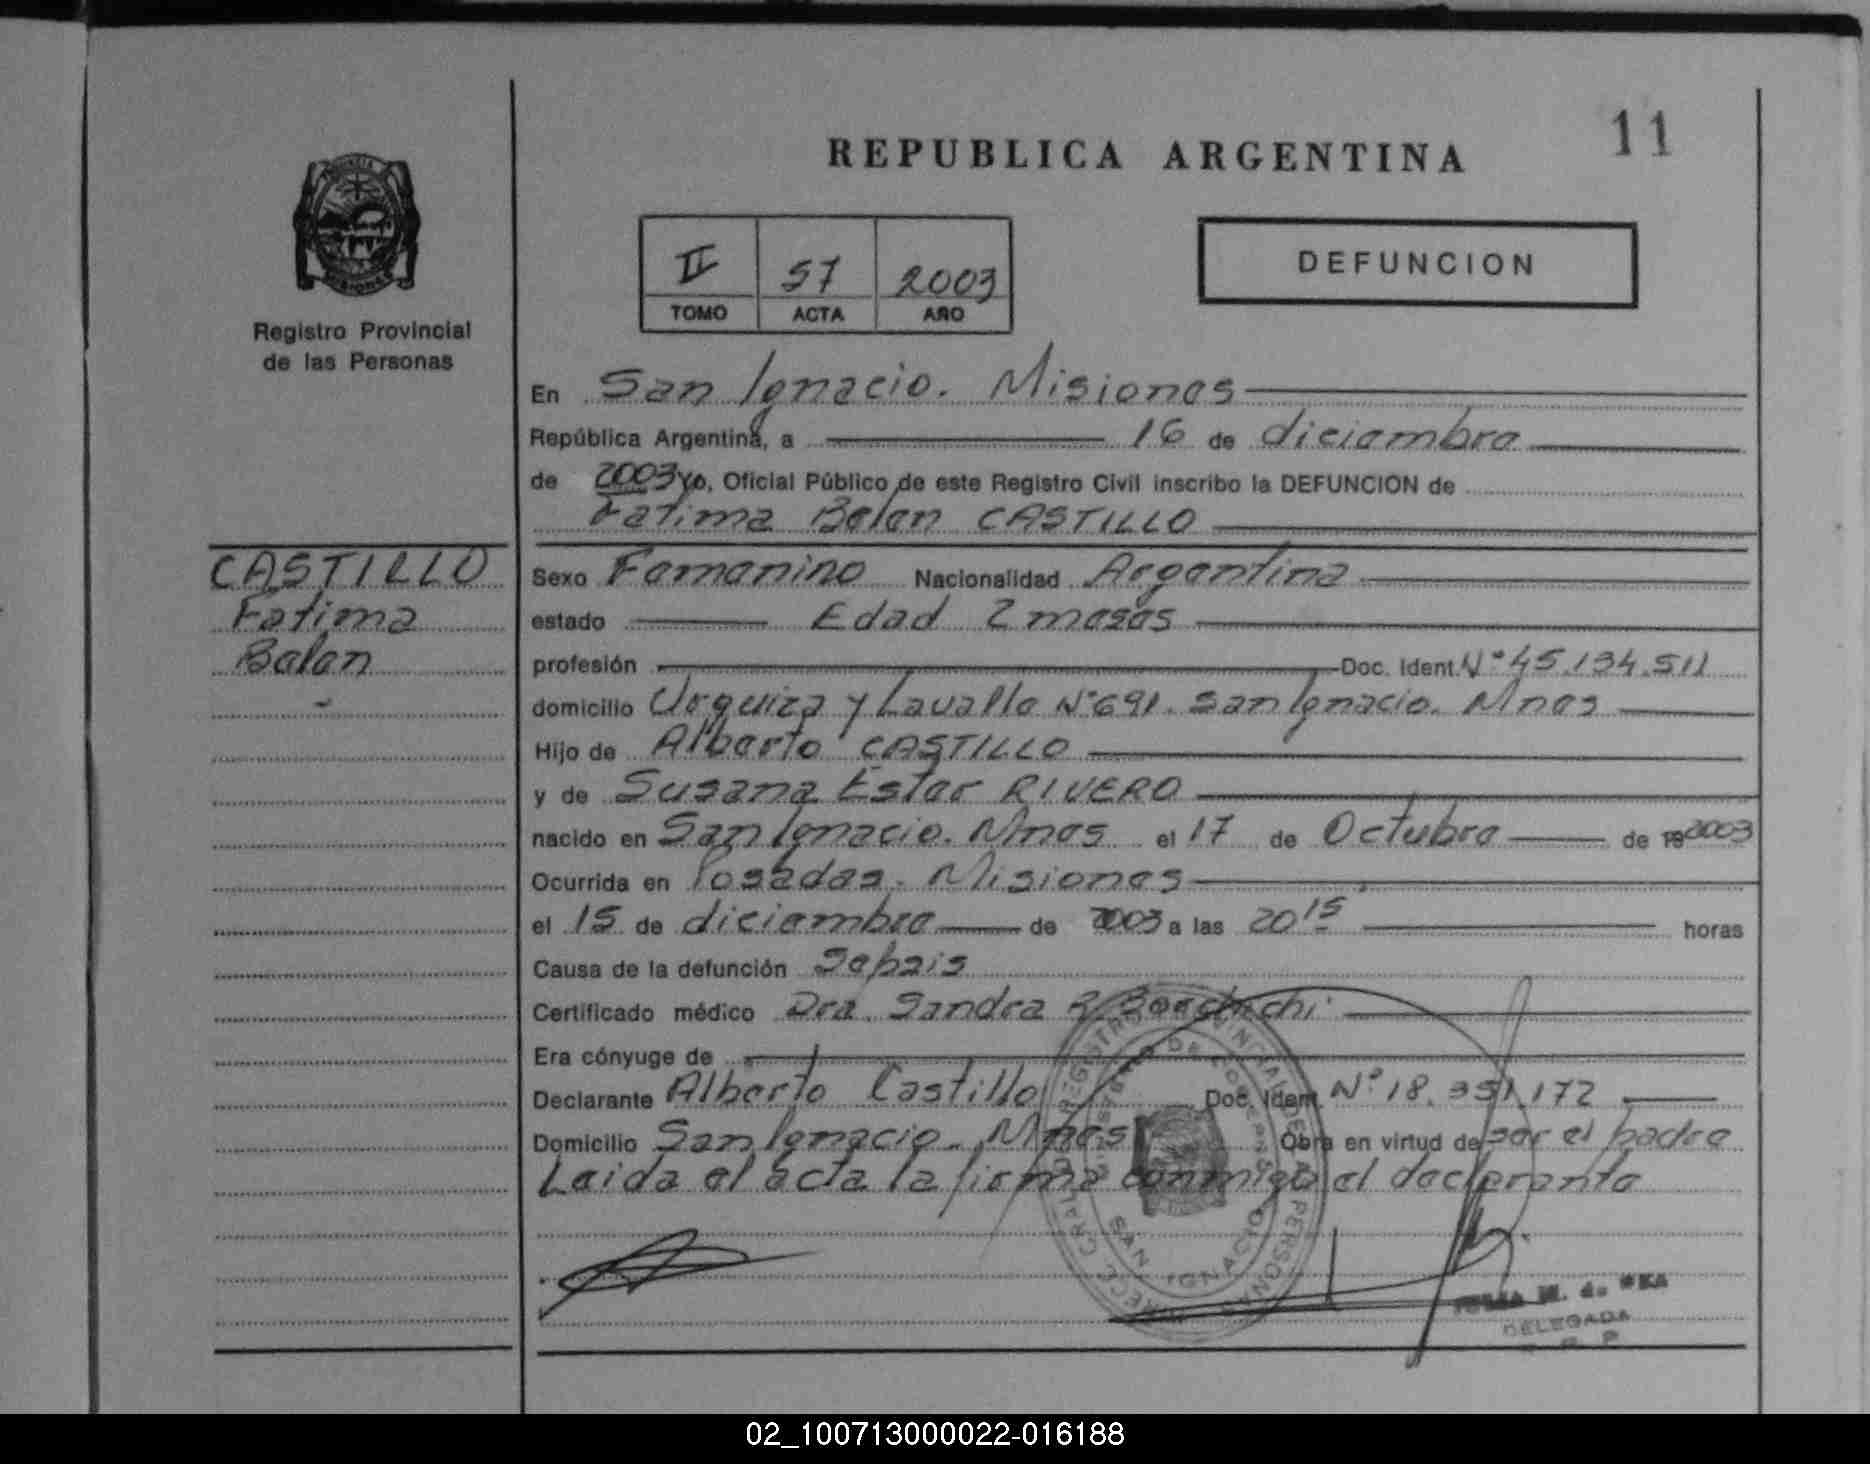 11
REPUBLICA ARGENTINA
DEFUNCION
II 57 2003
TOMO ACTA AÑO
Registro Provincial
de las Personas
En San Ignacio. Misiones
República Argentina, a 16 de diciembre
de 2003 Yo, Oficial Público de este Registro Civil inscribo la DEFUNCION de
Fatima Belen CASTILLO
CASTILLO
Fatima
Belen
Sexo Femenino Nacionalidad Argentina
estado Edad 2 meses
profesión Doc. Ident. Nº 45.134.511
domicilio Urquiza y Lavalle Nº 691. San Ignacio. Mnes
Hijo de Alberto CASTILLO
y de Susana Ester RIVERO
nacido en San Ignacio. Mnes el 17 de Octubre de 19 2003
Ocurrida en Posadas. Misiones
el 15 de diciembre de 2003 a las 20 15 horas
Causa de la defunción Sepsis
Certificado médico Dra. Sandra R.
Era cónyuge de
Declarante Alberto Castillo Doc. Ident. Nº 18.351.172
Domicilio San Ignacio. Mnes Obra en virtud de ser el padre
Leida el acta la firma conmigo el declarante
SAN IGNACIO
DELEGADA
02_100713000022-016188